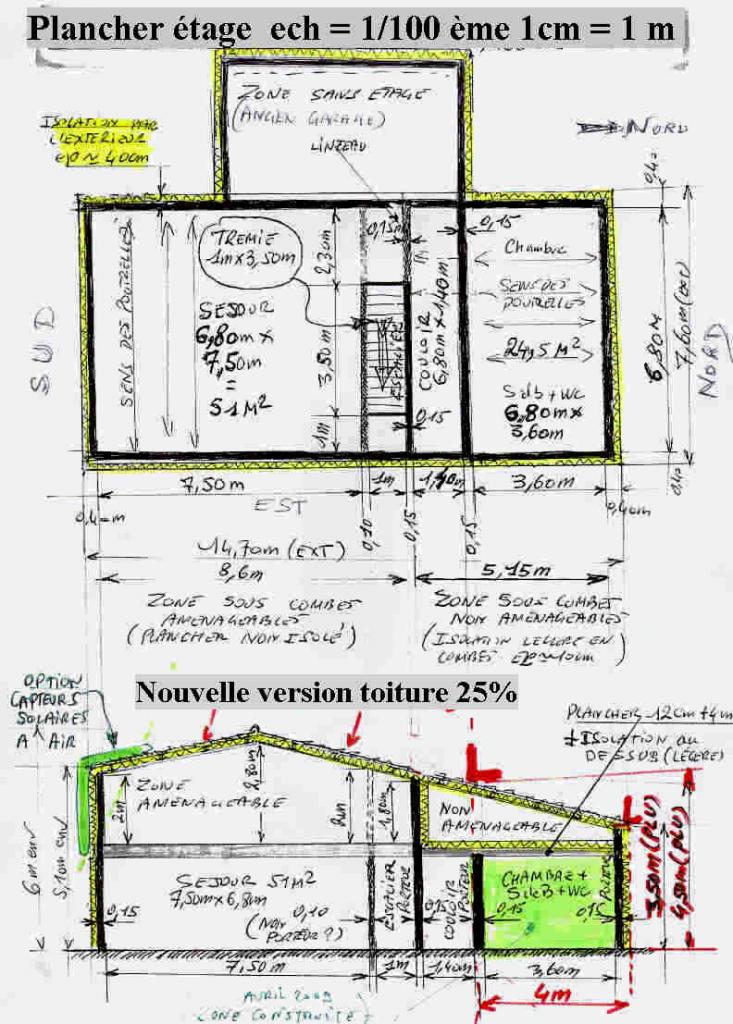 Plancher étage ech = 1/100 ème 1cm = 1 m
ZONE SANS ETAGE
(ANCIEN GARAGE)
LINTEAU
ISOLATION PAR
L'EXTERIEUR
ep ~ 40cm
NORD
0,40
0,15m
0,15
TREMIE
1m x 3,50m
SENS DES POUTRELLES
SEJOUR
6,80m x
7,50m
=
51 M²
2,30m
3,50m
1m
ESCALIER
COULOIR
6,80m x 1,40m
Chambre
SENS DES
POUTRELLES
24,5 M²
SdB + WC
6,80m x
3,60m
6,80m
7,60m (EXT)
SUD
NORD
0,15
0,40
7,50m
1m
1,40m
3,60m
EST
0,10
0,15
0,15
0,40m
14,70m (EXT)
8,6m
5,15m
ZONE SOUS COMBES
AMENAGEABLES
(PLANCHER NON ISOLÉ)
ZONE SOUS COMBES
NON AMENAGEABLES
(ISOLATION LEGERE EN
COMBES EP ~ 10cm)
OPTION
CAPTEURS
SOLAIRES
A AIR
Nouvelle version toiture 25%
PLANCHER 12cm + 4cm
+ ISOLATION AU
DESSUS (LÉGERE)
ZONE
AMENAGEABLE
2m
2,80m
2m
1,80m
NON
AMENAGEABLE
6m env
5,10m env
SEJOUR 51M²
7,50m x 6,80m
0,15
0,10
(NON
PORTEUR ?)
ESCALIER
PORTEUR
0,15
COULOIR
PORTEUR
CHAMBRE +
SdeB + WC
0,15
0,15
PORTEUR
3,50m (PLU)
4,50m (PLU)
7,50m
1m
1,40m
3,60m
4m
AVRIL 2009